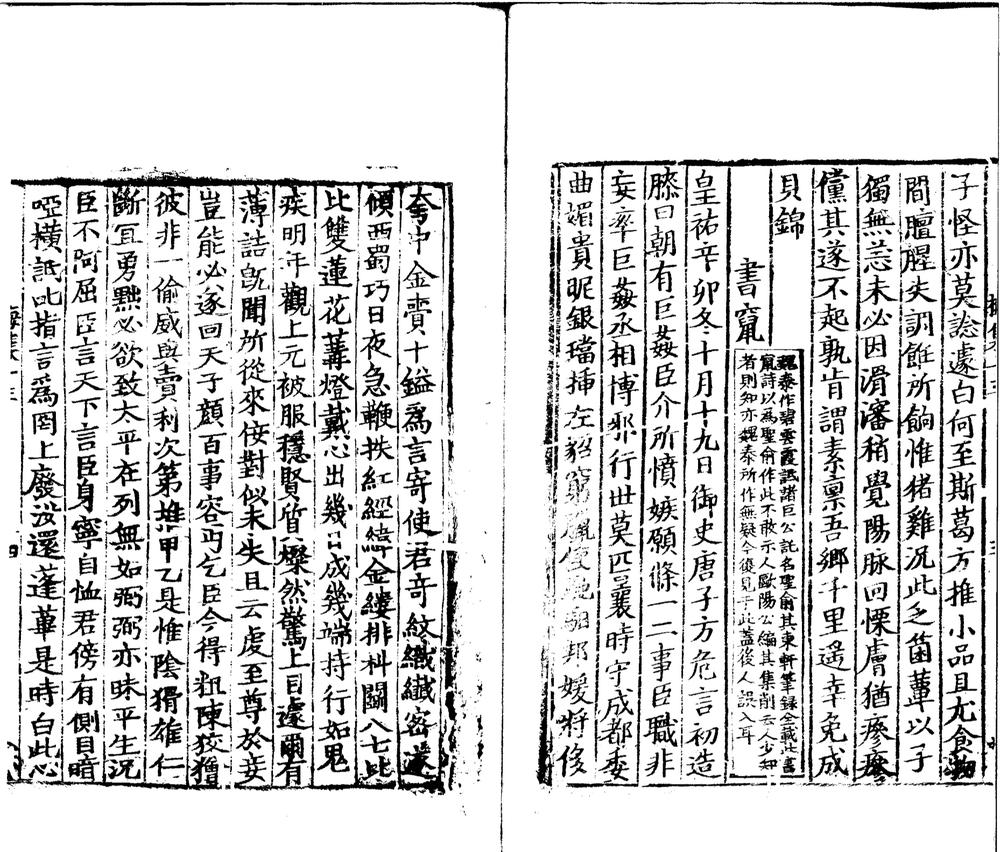 子怪亦莫諗遽白何至斯葛方推小品且尤食物
間膻腥失調飪所餉惟猪雞況此乏菌蕈以子
獨無恙未必因滑瀋稍覺陽脉回慄膚猶瘮瘮
儻其遂不起孰肯謂素禀吾鄉千里遥幸免成
貝錦
書竄
魏泰作碧雲霞詆諸巨公託名聖俞其東軒筆録全載此書
竄詩以為聖俞作此不敢示人歐陽公編其集削去人少知
者則知亦魏泰所作無疑今復見于此蓋後人誤入耳
皇祐辛卯冬十月十九日御史唐子方危言初造
膝曰朝有巨姦臣介所憤嫉願條一二事臣職非
妄率巨姦丞相博邪行世莫匹曩時守成都委
曲媚貴昵銀璫插左貂窮邦媛將侈
夸中金賫十鎰為言寄使君奇紋纖纖密遂
傾西蜀巧日夜急鞭抶紅經緯金縷排枓鬬八七比
比雙蓮花篝燈戴心出幾日成幾端持行如鬼
疾明年觀上元被服穩賢質燦然驚上目遽爾有
薄詰旣聞所從來佞對似未失且云虔至尊於妾
豈能必遂回天子顔百事容丐乞臣今得粗陳狡獪
彼非一偷威與賣利次第推甲乙是惟陰猾雄仁
斷宜勇黜必欲致太平在列無如弼弼亦昧平生況
臣不阿屈臣言天下言臣身寧自恤君傍有側目暗
啞横詆叱指言為罔上廢汝還蓬蓽是時白此心